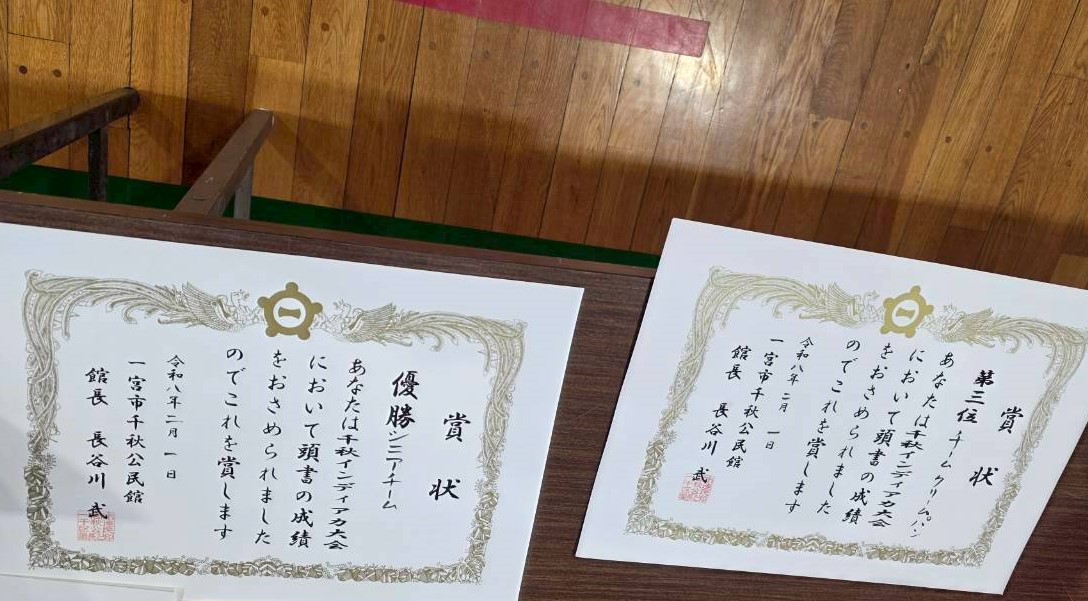 賞状
優勝 シニアチーム
あなたは千秋インディアカ大会
において頭書の成績
をおさめられました
のでこれを賞します
令和八年二月一日
一宮市千秋公民館
館長 長谷川 武
賞状
第三位 チームクリームパン
あなたは千秋インディアカ大会
において頭書の成績
をおさめられました
のでこれを賞します
令和八年二月一日
一宮市千秋公民館
館長 長谷川 武